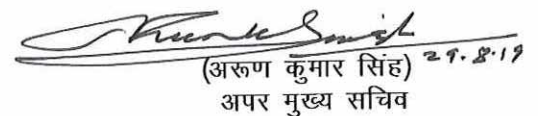 (अरूण कुमार सिंह) 29.8.19
अपर मुख्य सचिव